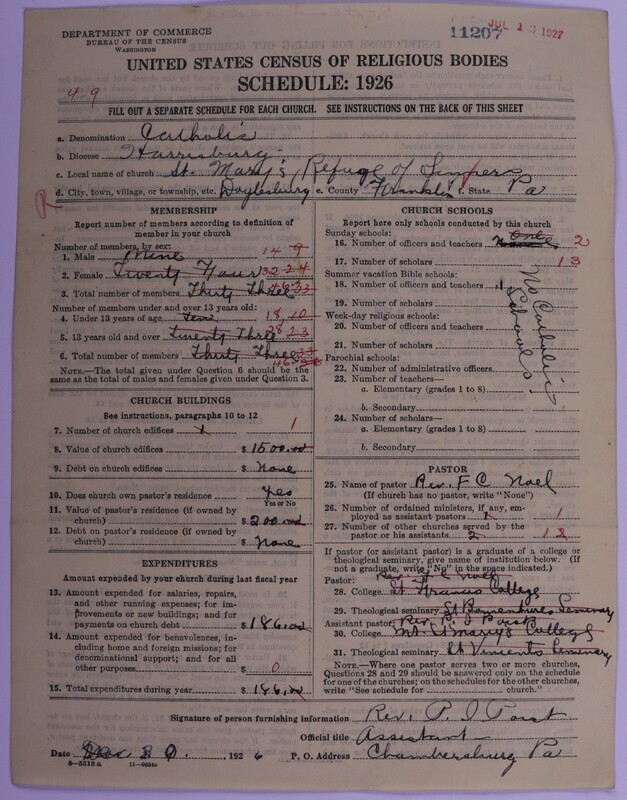 DEPARTMENT OF COMMERCE
BUREAU OF THE CENSUS
WASHINGTON
11207 JUL 1927
UNITED STATES CENSUS OF RELIGIOUS BODIES
SCHEDULE: 1926
4-9
FILL OUT A SEPARATE SCHEDULE FOR EACH CHURCH. SEE INSTRUCTIONS ON THE BACK OF THIS SHEET
a. Denomination Catholic
b. Diocese Harrisburg
c. Local name of church St. Mary's, Refuge of Sinners
d. City, town, village, or township, etc. Doylesburg e. County Franklin f. State Pa
R
MEMBERSHIP
Report number of members according to definition of
member in your church
Number of members, by sex:
1. Male Nine 14 9
2. Female Twenty Four 32 24
3. Total number of members Thirty Three 46 33
Number of members under and over 13 years old:
4. Under 13 years of age Ten 18 10
5. 13 years old and over Twenty Three 28 23
6. Total number of members Thirty Three 46 33
NOTE.—The total given under Question 6 should be the
same as the total of males and females given under Question 3.
CHURCH BUILDINGS
See instructions, paragraphs 10 to 12
7. Number of church edifices 1 1
8. Value of church edifices $ 1500.00
9. Debt on church edifices $ None
10. Does church own pastor's residence Yes
Yes or No
11. Value of pastor's residence (if owned by
church) $ 200.00
12. Debt on pastor's residence (if owned by
church) $ None
EXPENDITURES
Amount expended by your church during last fiscal year
13. Amount expended for salaries, repairs,
and other running expenses; for im-
provements or new buildings; and for
payments on church debt $ 186.00
14. Amount expended for benevolences,
including home and foreign missions; for
denominational support; and for all
other purposes $ 0
15. Total expenditures during year $ 186.00
CHURCH SCHOOLS
Report here only schools conducted by this church
Sunday schools: One
16. Number of officers and teachers 2
17. Number of scholars 13
Summer vacation Bible schools:
18. Number of officers and teachers
19. Number of scholars
Week-day religious schools:
20. Number of officers and teachers
21. Number of scholars
Parochial schools:
22. Number of administrative officers
23. Number of teachers—
a. Elementary (grades 1 to 8)
b. Secondary
24. Number of scholars—
a. Elementary (grades 1 to 8)
b. Secondary
No Catholic
Schools
PASTOR
25. Name of pastor Rev. F C Noel
(If church has no pastor, write "None")
26. Number of ordained ministers, if any, em-
ployed as assistant pastors 1 1
27. Number of other churches served by the
pastor or his assistants 2 12
If pastor (or assistant pastor) is a graduate of a college or
theological seminary, give name of institution below. (If
not a graduate, write "No" in the space indicated.)
Pastor: Rev. F C Noel
28. College St Francis College
29. Theological seminary St Bonaventures Seminary
Assistant pastor: Rev. P. J. Post
30. College Mt. St Mary's College
31. Theological seminary St Vincents Seminary
NOTE.—Where one pastor serves two or more churches,
Questions 28 and 29 should be answered only on the schedule
for one of the churches; on the schedules for the other churches,
write "See schedule for ........ church."
Signature of person furnishing information Rev. P. J. Post
Official title Assistant
Date 30, 1926 P. O. Address Chambersburg Pa
8—5318 a